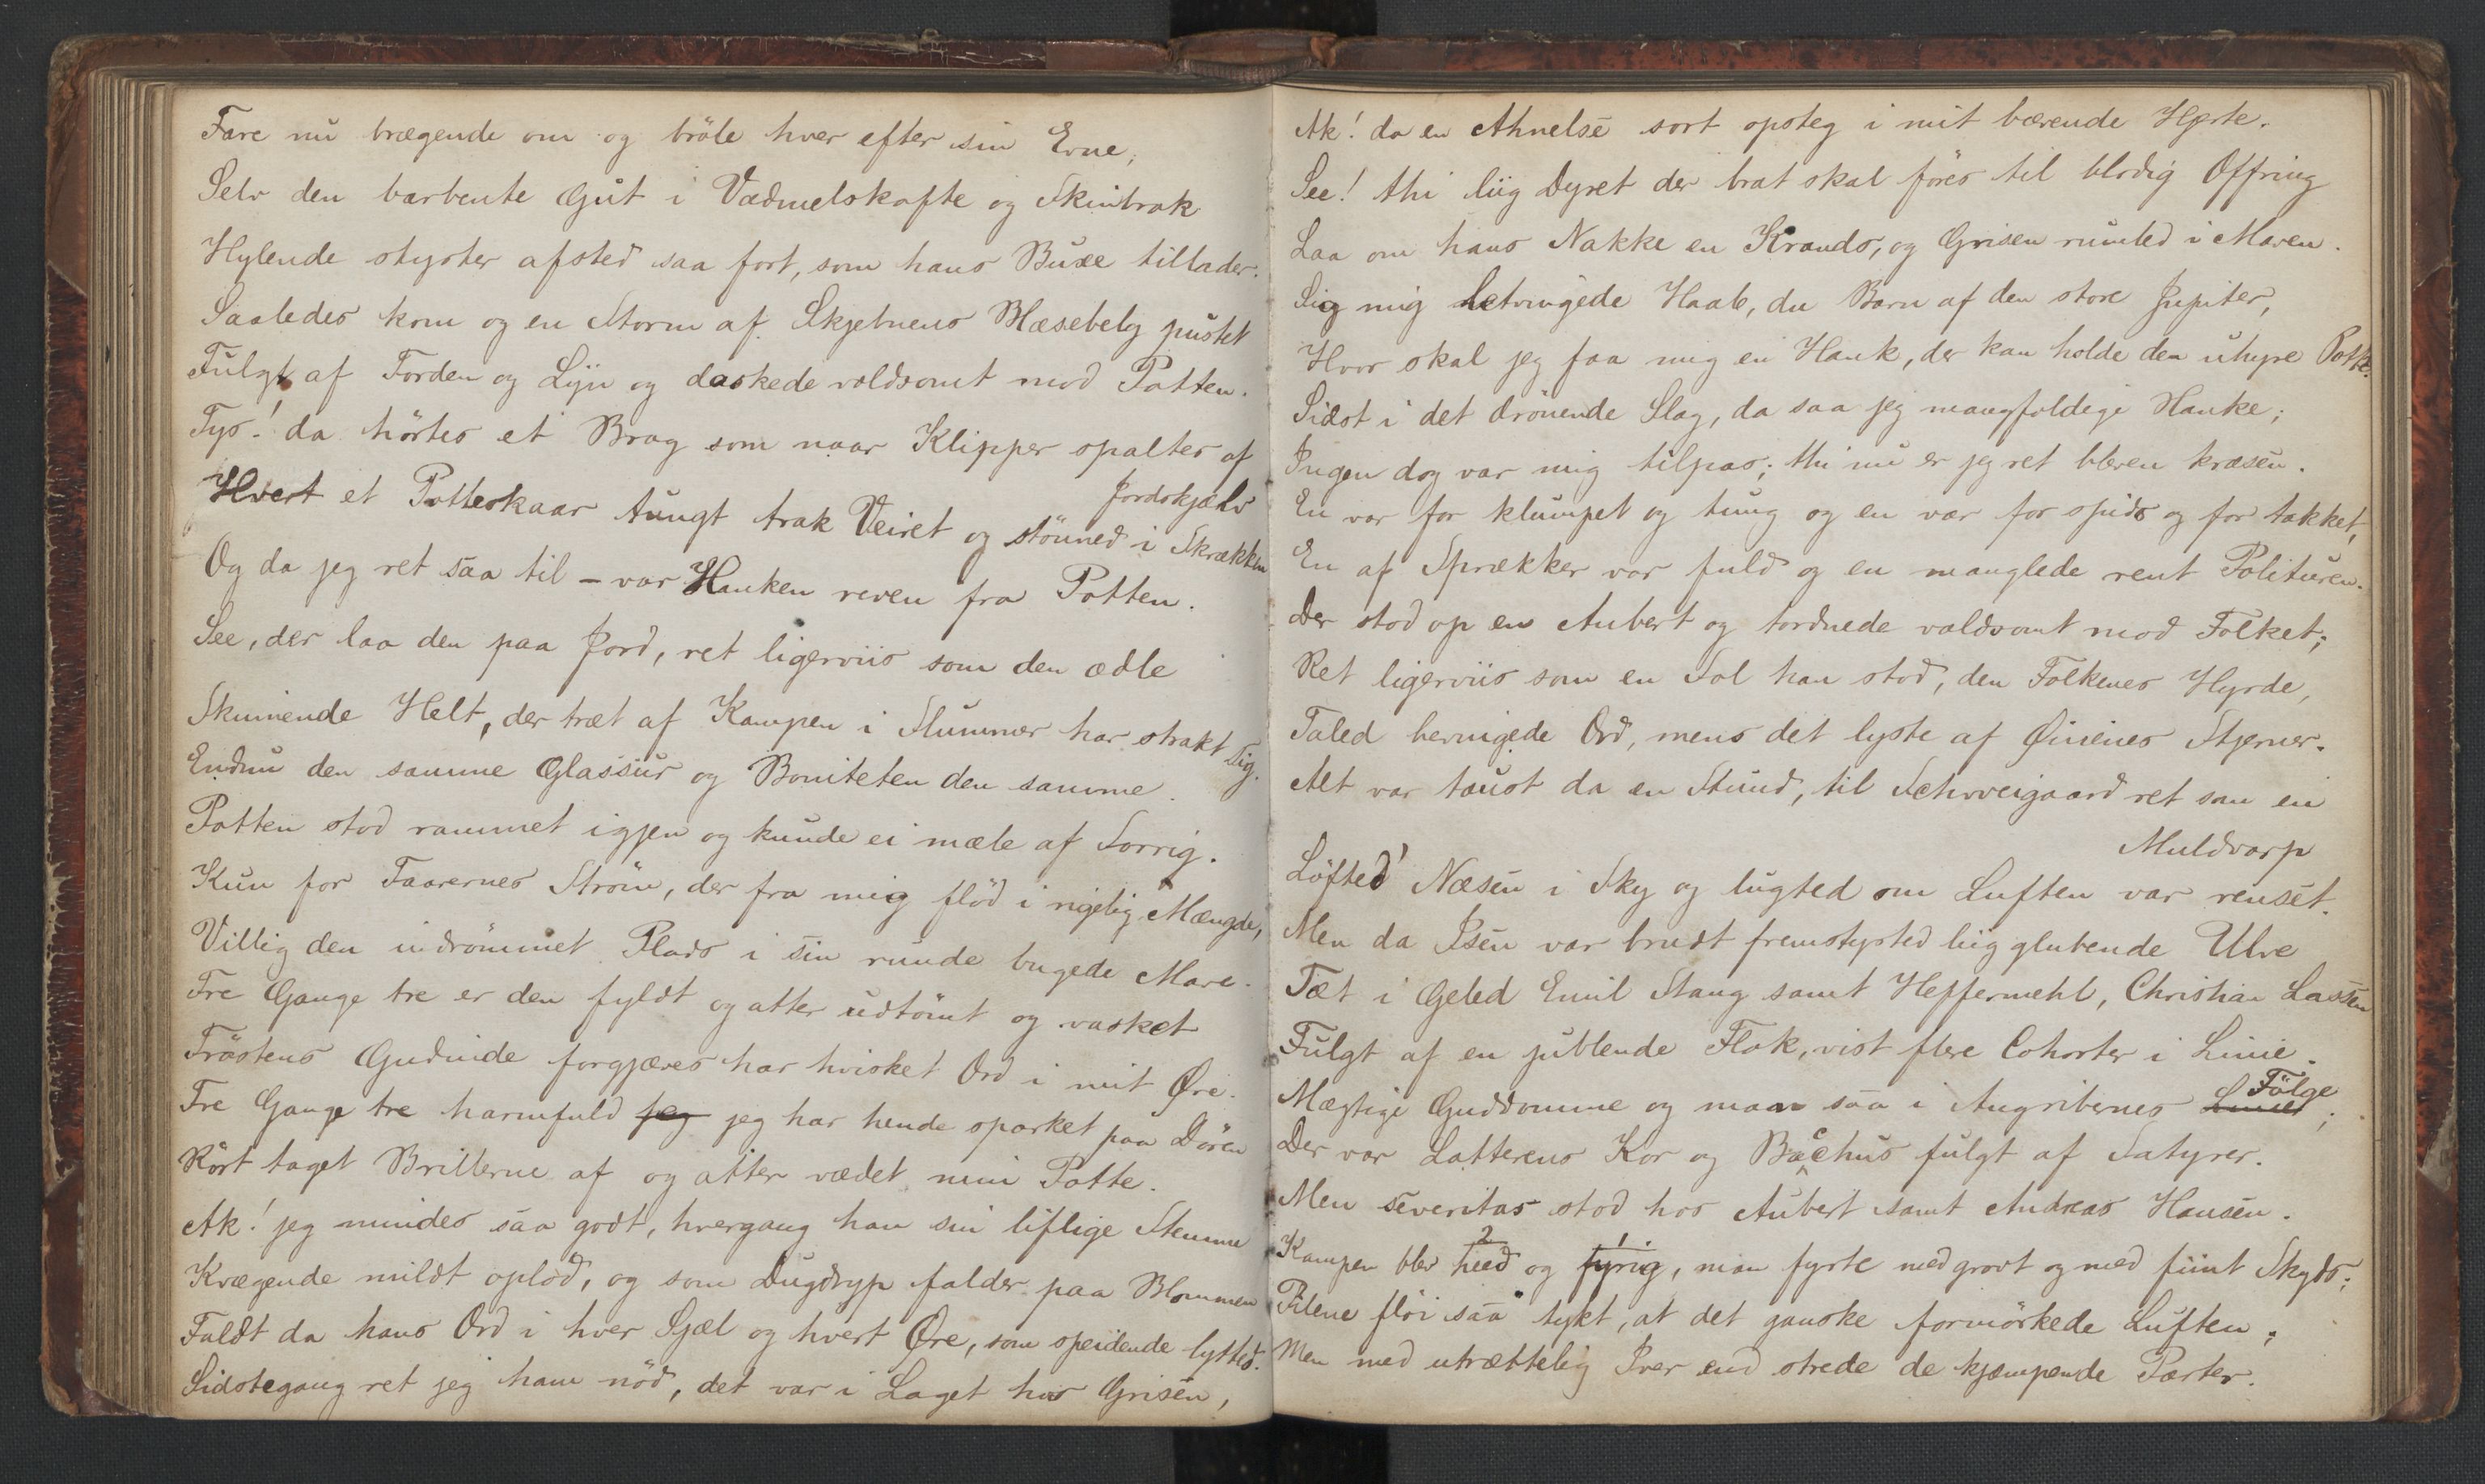 Fare nu brægende om og bröle hver efter sin Evne,
Selv den barbente Gut i Vadmelskofte og Skinbrok
Hylende styrter afsted saa fort, som hans Buxe tillader.
Saaledes kom og en Storm af Skjebnens Blæsebelg pustet
Fulgt af Torden og Lyn og daskede voldsomt mod Potten.
Tys! da hörtes et Brag som naar Klipper spaltes af
Jordskjælv
Hvert et Potteskaar tungt trak Veiret og stönned i Skrækken
Og da jeg ret saa til – var Hanken reven fra Potten.
See, der laa den paa Jord, ret ligerviis som den ædle
Skumende Helt, der træt af Kampen i Slummer har strakt sig.
Endnu den samme Glassur og Boniteten den samme.
Potten stod rammet igjen og kunde ei mæle af Sorrig.
Kun for Taarernes Ström, der fra mig flöd i rigelig Mængde,
Villig den indrömmet Plads i sin runde bugede Mave.
Tre Gange tre er den fyldt og atter udtömt og vasket
Tröstens Gudinde forgjæves har hvisket Ord i mit Øre.
Tre Gange tre harmfuld jeg jeg har hende sparket paa Dören
Rört taget Brillerne af og atter vædet min Potte.
Ak! jeg mindes saa godt, hvergang han sin liflige Stemme
Kvægende mildt oplod, og som Dugdryp falder paa Blommen
Faldt da hans Ord i hver Sjæl og hvert Øre, som speidende lytted.
Sidstegang ret jeg ham nöd, det var i Laget hos Grisen,
Ak! da en Ahnelse sort opsteg i mit bærende Hjerte.
See! thi liig Dyret der brat skal föres til blodig Offring
Laa om hans Nakke en Krands, og Grisen rumled i Maven.
Sig mig letvingede Haab, du Barn af den store Jupiter,
Hvor skal jeg faa mig en Hank, der kan holde den uhyre Potte.
Sidst i det drönende Slag, da saa jeg mangfoldige Hanke;
Ingen dog var mig tilpas; thi nu er jeg ret bleven kræsen.
En var for klumpet og tung og en var for spids og for takket,
En af Sprækker var fuld og en manglede rent Polituren.
Der stod op en Aubert og tordnede voldsomt mod Folket;
Ret ligerviis som en Sol han stod, den Folkenes Hyrde,
Taled bevingede Ord, mens det lyste af Øinenes Stjerner.
Alt var taust da en Stund, til Schweigaard ret som en
Muldvarp
Löfted Næsen i Sky og lugted om Luften var renset.
Men da Isen var brudt fremstyrted liig glubende Ulve
Tæt i Geled Emil Stang samt Heffermehl, Christian Lassen
Fulgt af en jublende Flok, vist flere Cohorter i Linie.
Mægtige Guddomme og man saa i Angribernes Linier Fölge;
Der var Latterens Kor og Bacchus fulgt af Satyrer.
Men severitas stod hos Aubert samt Andreas Hansen.
Kampen blev 2 heed og 1 fyrig, man fyrte med grovt og med fiint Skyts;
Pilene flöi saa tykt, at det ganske formörkede Luften;
Men med utrættelig Iver end strede de kjæmpende Parter.